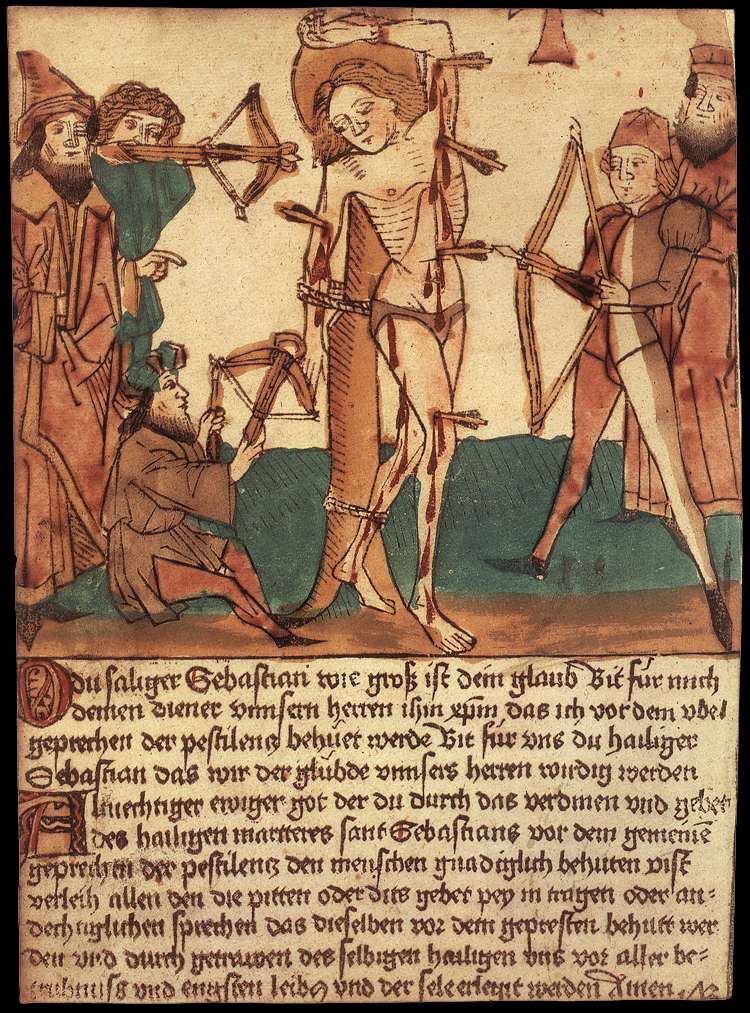 O du säliger Sebastian wie groß ist dein glaub Bit für mich
deinen diener vnnsern herren ihm xpm das ich vor dem vbel
geprechen der pestilentz behüet werde Bit für vns du hailiger
Sebastian das wir der glübde vnnsers herren wirdig werden
Almechtiger ewiger got der du durch das verdinen vnd gebet
des hailigen marteres sant Sebastians vor dem gemeine
geprechen der pestilentz den menschen gnadiglich behuten pist
verleih allen den die pitten oder diss gebet pey in tragen oder an=
dechtiglichen sprechen das dieselben vor dem gepresten behütt wer
den vnd durch getrawen des selbigen hailigen vns vor aller be=
trubnuss vnd engsten leibs vnd der sele erlegit werden Amen